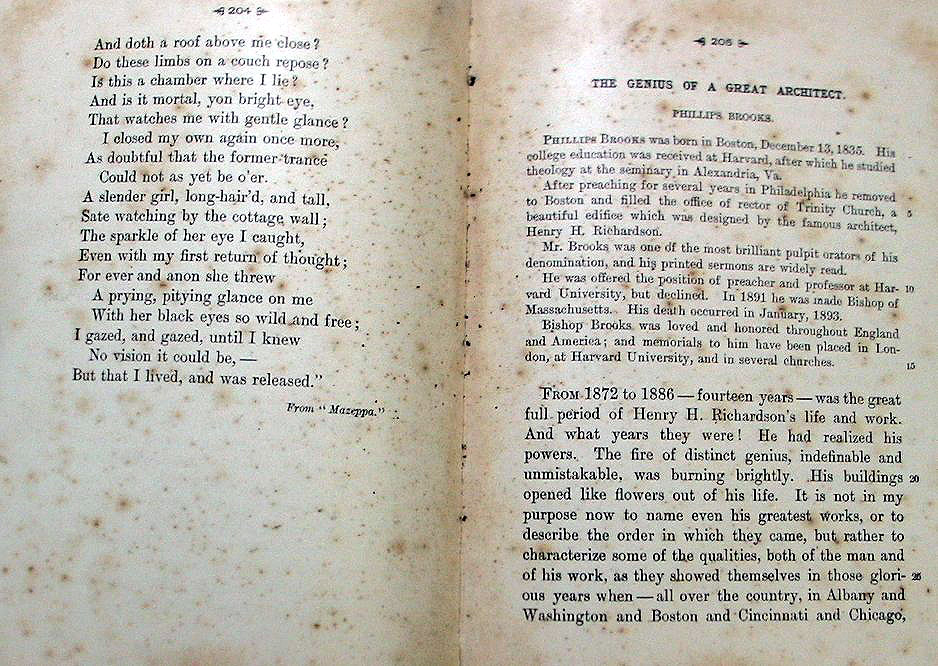 204
And doth a roof above me close?
Do these limbs on a couch repose?
Is this a chamber where I lie?
And is it mortal, yon bright eye,
That watches me with gentle glance?
I closed my own again once more,
As doubtful that the former trance
Could not as yet be o'er.
A slender girl, long-hair'd, and tall,
Sate watching by the cottage wall;
The sparkle of her eye I caught,
Even with my first return of thought;
For ever and anon she threw
A prying, pitying glance on me
With her black eyes so wild and free;
I gazed, and gazed, until I knew
No vision it could be, —
But that I lived, and was released."
From "Mazeppa."
205
THE GENIUS OF A GREAT ARCHITECT.
PHILLIPS BROOKS.
PHILLIPS BROOKS was born in Boston, December 13, 1835. His
college education was received at Harvard, after which he studied
theology at the seminary in Alexandria, Va.
After preaching for several years in Philadelphia he removed
to Boston and filled the office of rector of Trinity Church, a 5
beautiful edifice which was designed by the famous architect,
Henry H. Richardson.
Mr. Brooks was one of the most brilliant pulpit orators of his
denomination, and his printed sermons are widely read.
He was offered the position of preacher and professor at Har- 10
vard University, but declined. In 1891 he was made Bishop of
Massachusetts. His death occurred in January, 1893.
Bishop Brooks was loved and honored throughout England
and America; and memorials to him have been placed in Lon-
don, at Harvard University, and in several churches. 15
FROM 1872 to 1886 — fourteen years — was the great
full period of Henry H. Richardson's life and work.
And what years they were! He had realized his
powers. The fire of distinct genius, indefinable and
unmistakable, was burning brightly. His buildings 20
opened like flowers out of his life. It is not in my
purpose now to name even his greatest works, or to
describe the order in which they came, but rather to
characterize some of the qualities, both of the man and
of his work, as they showed themselves in those glori- 25
ous years when — all over the country, in Albany and
Washington and Boston and Cincinnati and Chicago,